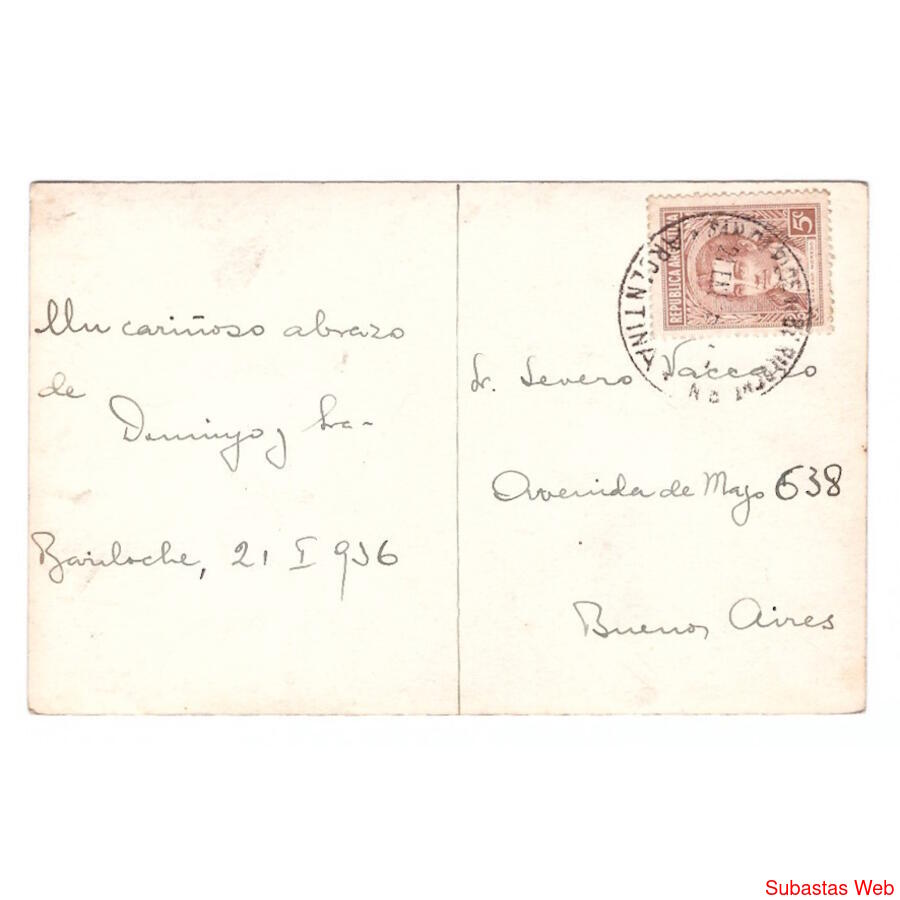 Un cariñoso abrazo
de
Domingo y Sra-
Bariloche, 21 I 936
REPUBLICA ARGENTINA
5c
ARGENTINA
Sr. Severo Vaccaro
Avenida de Mayo 638
Buenos Aires
Subastas Web